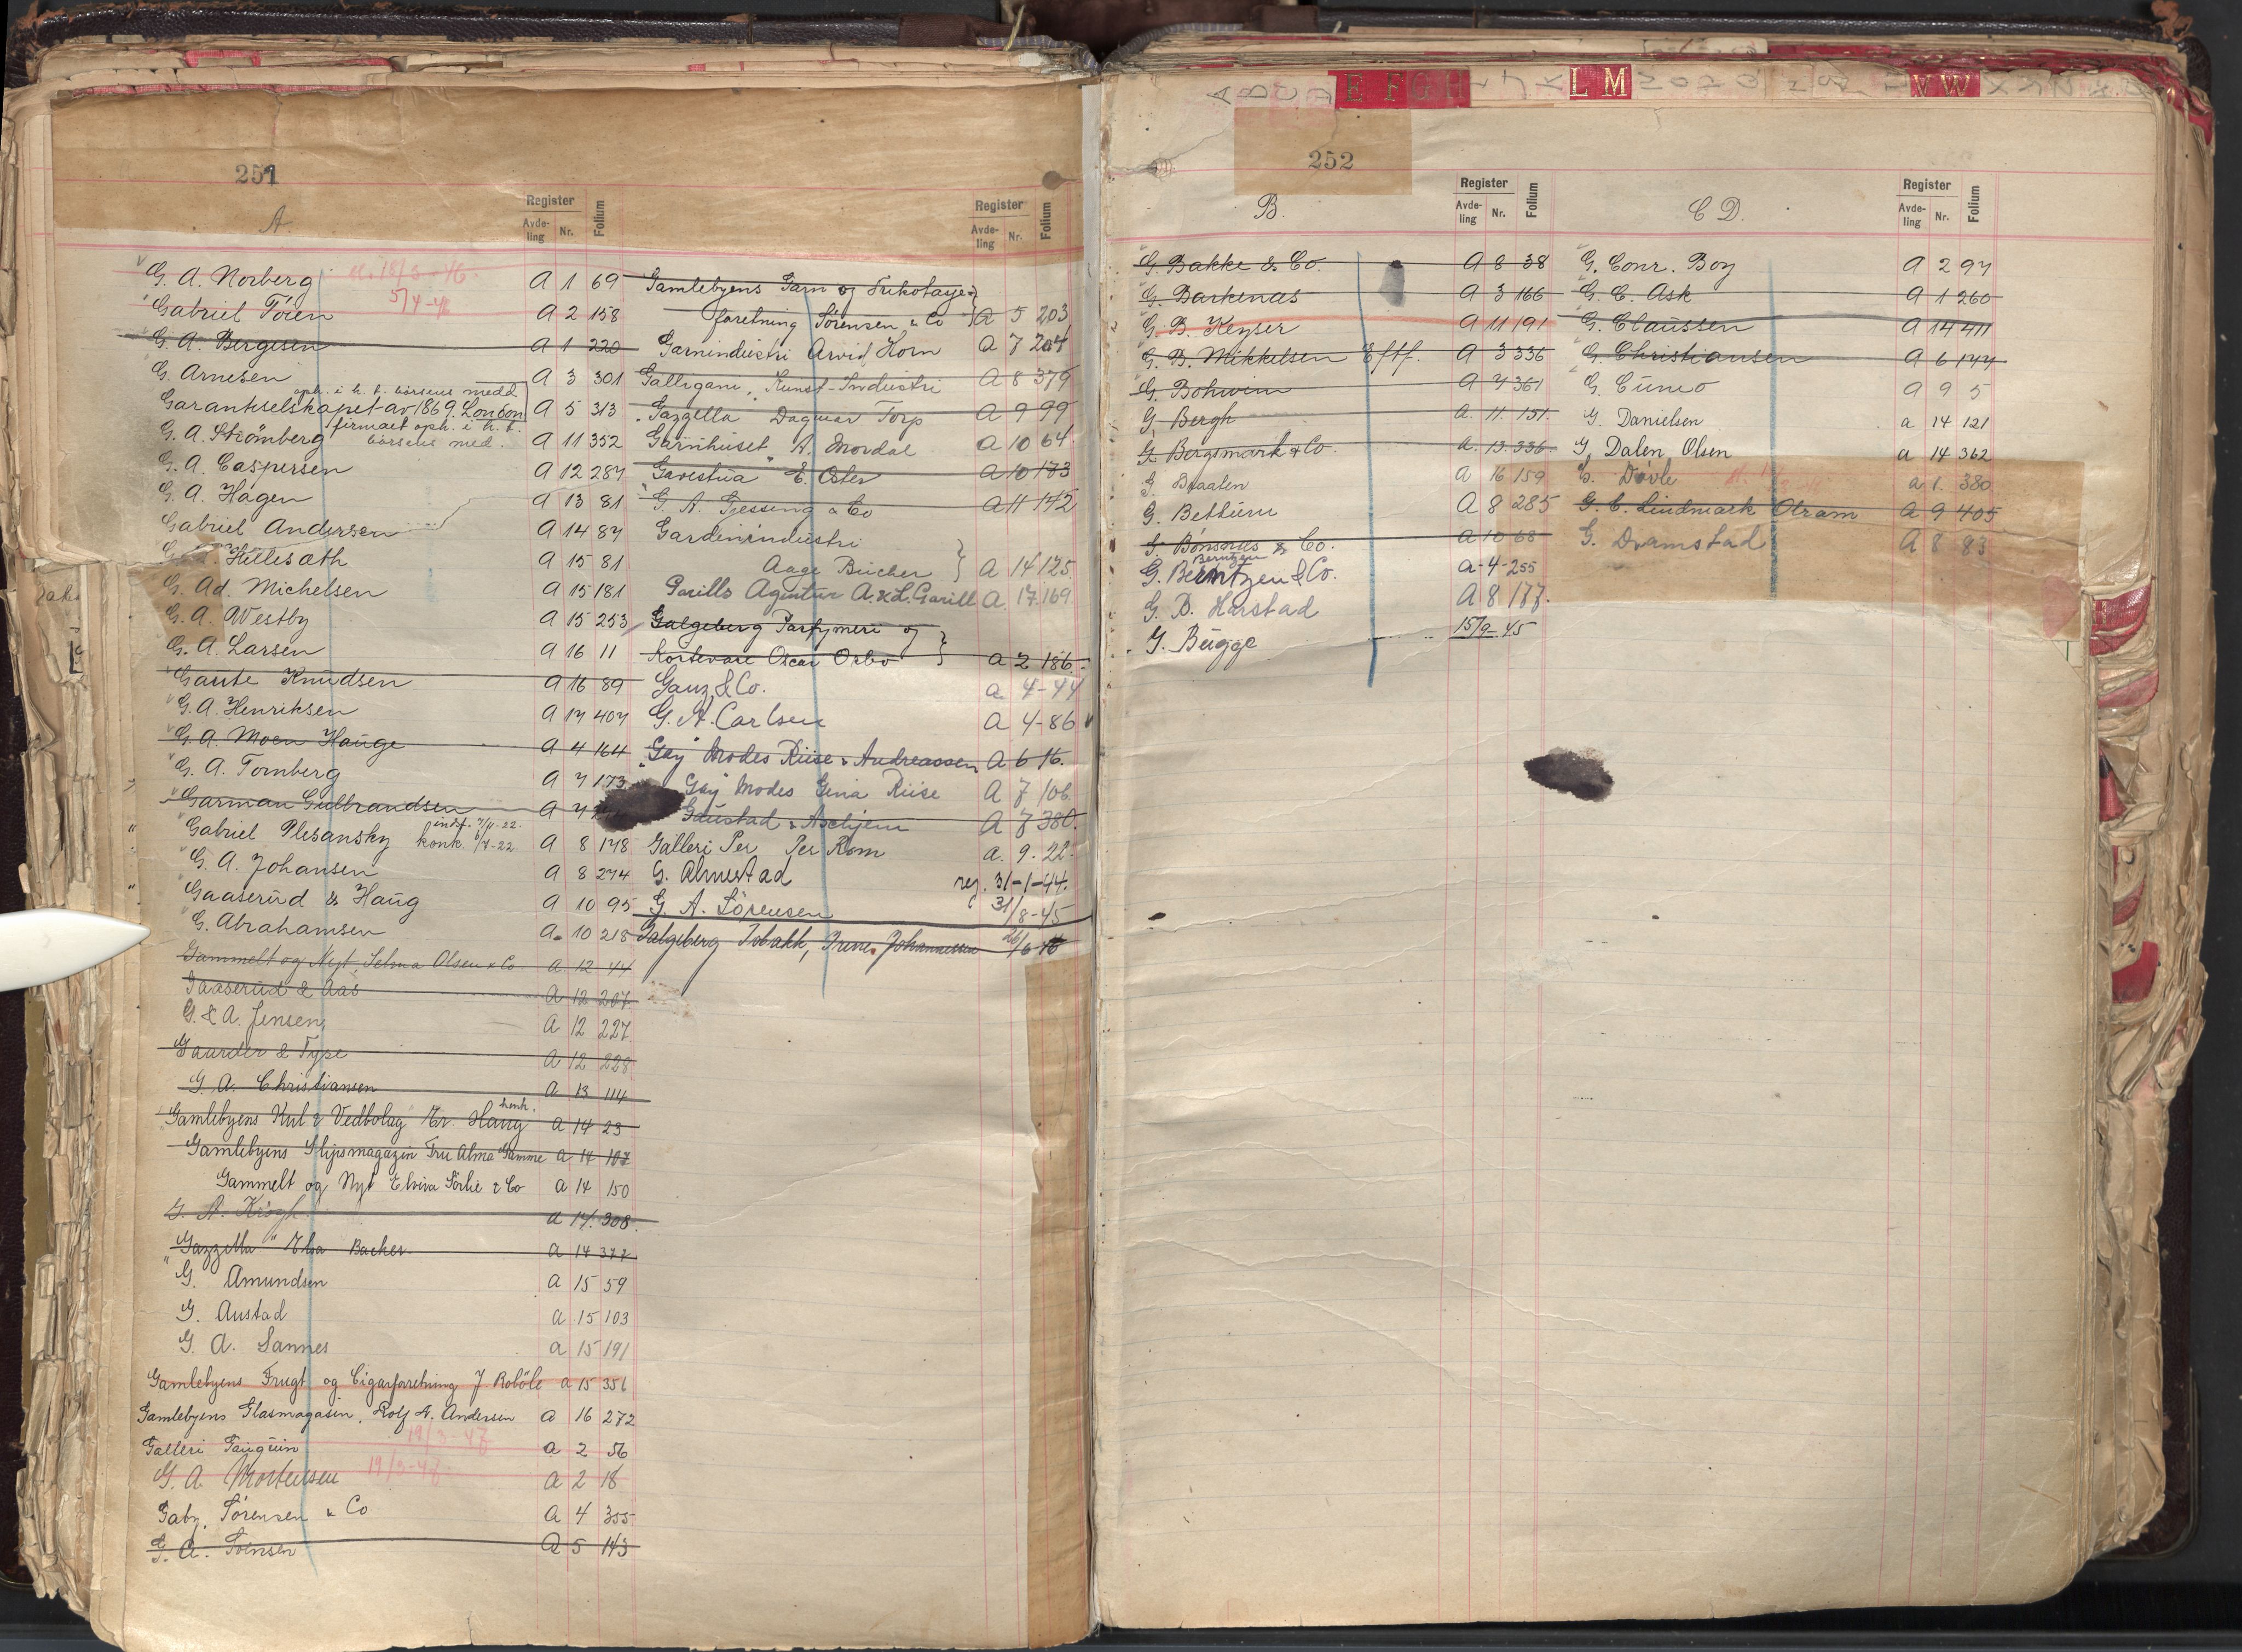 251
A
Register
Avde-
ling
Nr.
Folium
G. A. Norberg A 1 69
5/4-46
Gabriel Töien A 2 158
G. A. Bergesen A 1 220
G. Arnesen A 3 301
oph. i h. t. börsens medd
Garantiselskapet av 1869. London A 5 313
firmaet oph. i h. t.
börsens med.
G. A. Strömberg A 11 352
G. A. Caspersen A 12 287
G. A. Hagen A 13 81
Gabriel Andersen A 14 87
Hillesath A 15 81
G. Ad. Michelsen A 15 181
G. A. Westby A 15 253
G. A. Larsen A 16 11
Gaute Knudsen A 16 89
G. A. Henriksen A 17 407
G. A. Moen Hauge A 4 164
G. A. Tornberg A 7 173
Garman Gulbrandsen A 7
Gabriel Plesansky konk. 6/7-22. A 8 178
G. A. Johansen A 8 274
Gaaserud & Haug A 10 95
G. Abrahamsen A. 10 218
Gammelt og Nyt, Selma Olsen & Co. A. 12 44
Gaaserud & Aas A 12 207.
G. & A. Jensen A 12 227
Gaarder & Type A 12 228
G. A. Christiansen A 13 114
Gamlebyens Kul & Vedbolag Kr. Haug A 14 23
Gamlebyens Slipsmagazin Fru Alma Gamme a 14 107
Gammelt og Nyt Elvira Sörlie & Co a 14 150
G. A. Krogh a 14. 308.
"Gazzella" Elsa Bacher a 14 377
G. Amundsen a 15 59
G. Austad a 15 103
G. A. Sannes a 15 191
Gamlebyens Frugt og Cigarforretning J. Roböle a 15 351
Gamlebyens Glasmagasin, Rolf A. Andersen a 16 272
19/3-47
Galleri Gauguin a 2 56
G. A. Mortensen a 2 18
Gaby, Sørensen & Co a 4 355
G. A. Svensen a 5 143
Register
Avde-
ling
Nr.
Folium
Gamlebyens Garn og Trikotage-
forretning Sørensen & Co A 5 203
Garnindustri Arvid Korn A 7 204
Galligani, Kunst-Industri A 8 379
"Gazzella" Dagmar Torp A 9 99
Garnhuset A. Mordal A 10 64
Gavestua E. Oster A 10 173
G. A. Gjessing & Co A 11 172
Gardinindustri
Aage Bücher A 14 125
Garills Agentur A. & L. Garill A. 17. 169
Galgeberg Parfymeri og
Kortevare Oscar Orbo a 2 186.
Ganz & Co. a 4-44
G. A. Carlsen a 4-86
"Gay" Modes Riise & Andreassen A 6 16.
"Gay" Modes Gina Riise A 7 106
Gaustad & Aschjem A 7 380.
Galleri Per Per Rom a. 9. 22.
G. Almestad reg. 31-1-44.
G. A. Sörensen 31/8-45
Galgeberg Tobakk, Irene Johannessen 26/6-46
252
B.
Register
Avde-
ling
Nr.
Folium
G. Bakke & Co. A 8 38
G. Barkenas A 3 166
G. B. Keyser A 11 191
G. B. Mikkelsen Eftf. A 3 336
G. Bohwim A 7 361
G. Bergh A. 11. 151.
G. Bergsmark & Co. A. 13. 336.
G. Braaten A 16 159
G. Betteum A 8 285
G. Bonsnes & Co. A 10 68
Berntzen
G. Berntzen & Co. a-4-255
G. B. Harstad A 8 177.
G. Bugge 15/9-45
C D.
Register
Avde-
ling
Nr.
Folium
G. Conr. Boy A 2 97
G. C. Ask A 1 260
G. Claussen A 14 411
G. Christiansen A 6 144
G. Cuneo A 9 5
G. Danielsen a 14 121
G. Dalen Olsen a 14 362
G. Døvle a 1. 380
G. C. Lindmark Olram A 9 405
G. Dramstad A 8 83
E F G H L M V W